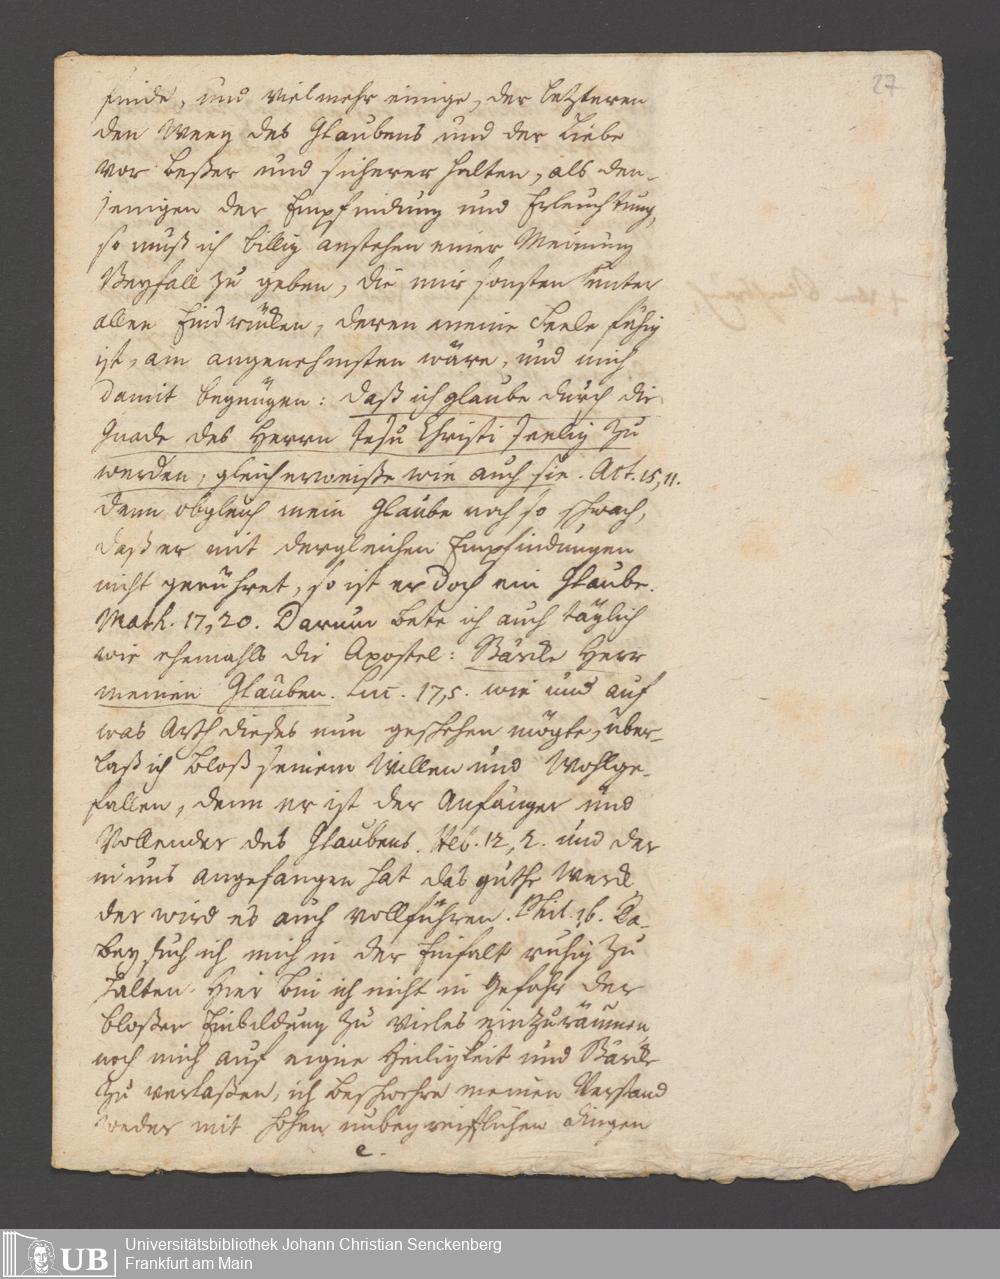 27
finde, und vielmehr einige, der letzteren
den Weeg des Glaubens und der Liebe
vor beßer und sicherer halten, als den-
jenigen der Empfindung und Erleuchtung,
so muß ich billig anstehen einer Meinung
Beyfall zu geben, die mir sonsten unter
allen Eindrücken, deren meine Seele fähig
ist, am angenehmsten wäre, und mich
damit begnügen: daß ich glaube durch die
Gnade des Herrn Jesu Christi seelig zu
werden, gleicherweiße wie auch sie. Act. 15, 11.
denn obgleich mein Glaube noch so schwach,
daß er mit dergleichen Empfindungen
nicht gerühret, so ist er doch ein Glaube.
Math. 17, 20. Darum bete ich auch täglich
wie ehemahls die Apostel: Stärcke Herr
meinen Glauben. Luc. 17, 5. wie und auf
was Arth dieses nun geschehen mögte, über-
laß ich bloß seinem Willen und Wohlge-
fallen, denn er ist der Anfänger und
Vollender des Glaubens. Heb. 12, 2. und der
in uns angefangen hat das guthe Werck,
der wird es auch vollführen. Phil. 1, 6. Da-
bey such ich mich in der Einfalt ruhig zu
halten. Hier bin ich nicht in Gefahr der
bloßen Einbildung zu vieles einzuräumen
noch mich auf eigne Heiligkeit und Stärcke
zu verlaßen, ich beschwehre meinen Verstand
weder mit hohen unbegreifflichen Dingen
e.
Universitätsbibliothek Johann Christian Senckenberg
Frankfurt am Main
UB